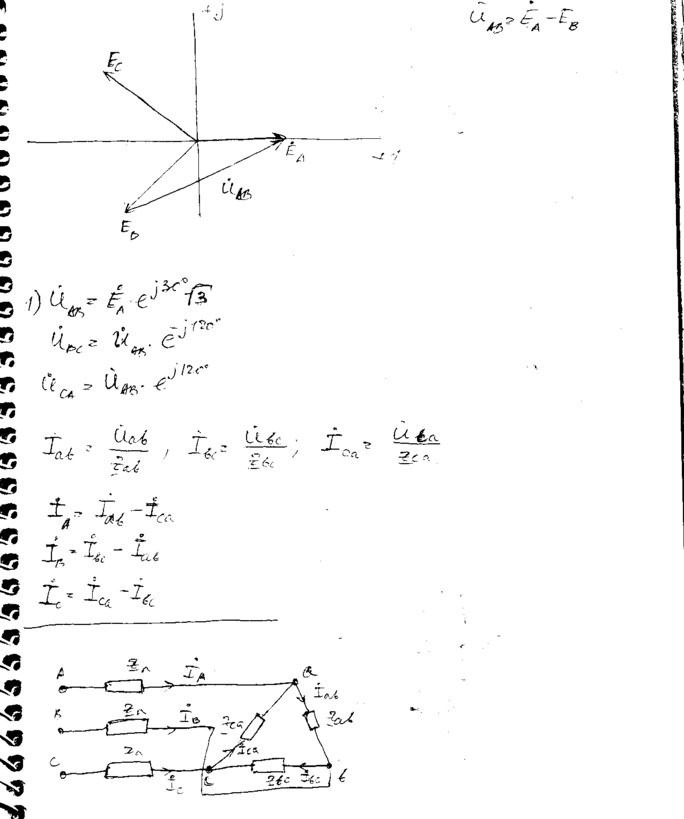 +j
U̇_AB = Ė_A − E_B
E_C
+1
Ė_A
U̇_AB
E_B
1) U̇_AB = Ė_A · e^{j30°} √3
U̇_BC = U̇_AB · e^{-j120°}
U̇_CA = U̇_AB · e^{j120°}
İ_ab = U̇_ab / Z_ab , İ_bc = U̇_bc / Z_bc ; İ_ca = U̇_ca / Z_ca
İ_A = İ_ab − İ_ca
İ_B = İ_bc − İ_ab
İ_C = İ_ca − İ_bc
A Z_л İ_A a
İ_ab
B Z_л İ_B Z_ca Z_ab
İ_ca
C Z_л İ_C c Z_bc İ_bc b